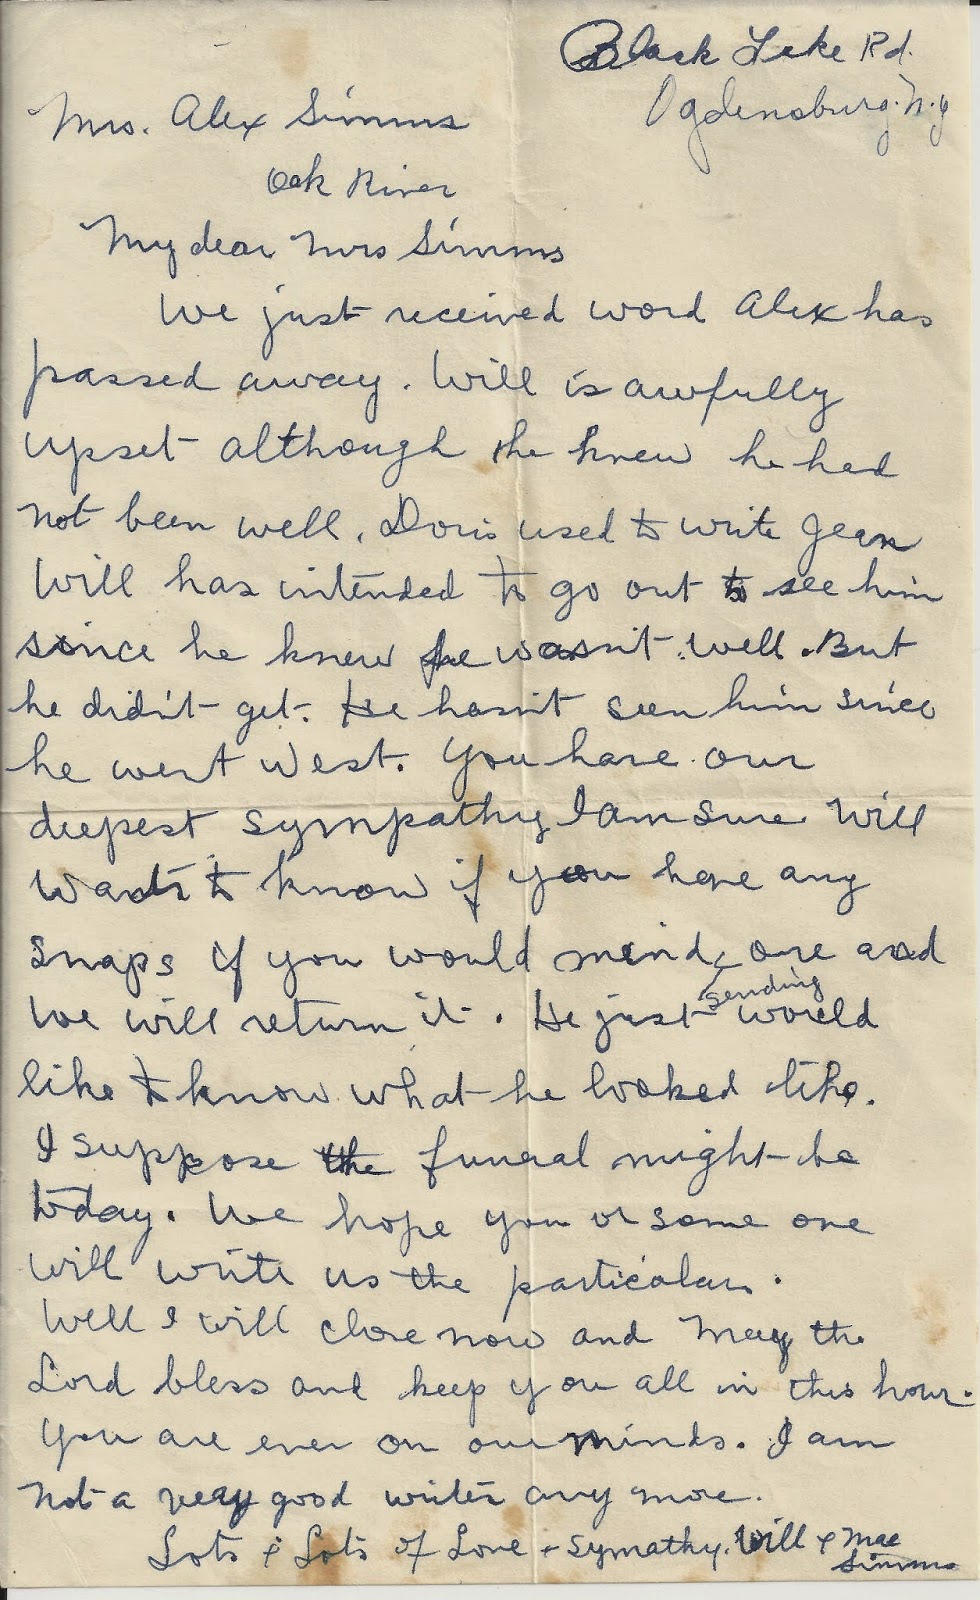 Black Lake Rd.
Ogdensburg. N.Y
Mrs. Alex Simms
Oak River
My dear Mrs Simms
We just received word Alex has
passed away. Will is awfully
upset although he knew he had
not been well. Doris used to write Jean
Will has intended to go out to see him
since he knew he wasn't well. But
he didn't get. He hasn't seen him since
he went West. You have our
deepest sympathy I am sure Will
wants to know if you have any
snaps if you would mind sending one and
we will return it. He just would
like to know what he looked like.
I suppose the funeral might be
today. We hope you or some one
will write us the particulars.
Well I will close now and may the
Lord bless and keep you all in this hour.
You are ever on our minds. I am
not a very good writer any more.
Lots & Lots of Love + Symathy. Will & Mae
Simms